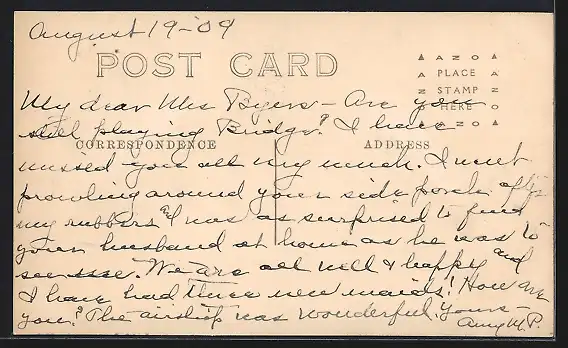 August 19-09
POST CARD
AZO
PLACE
STAMP
HERE
AZO
My dear Mrs Byers - Are you
still playing Bridge? I have
CORRESPONDENCE
ADDRESS
missed you all very much. I went
prowling around your side porch after
my rubbers and I was as surprised to find
your husband at home as he was to
see me. We are all well & happy and
I have had three new maids! How are
you? The airship was wonderful. Yours -
Amy M. P.